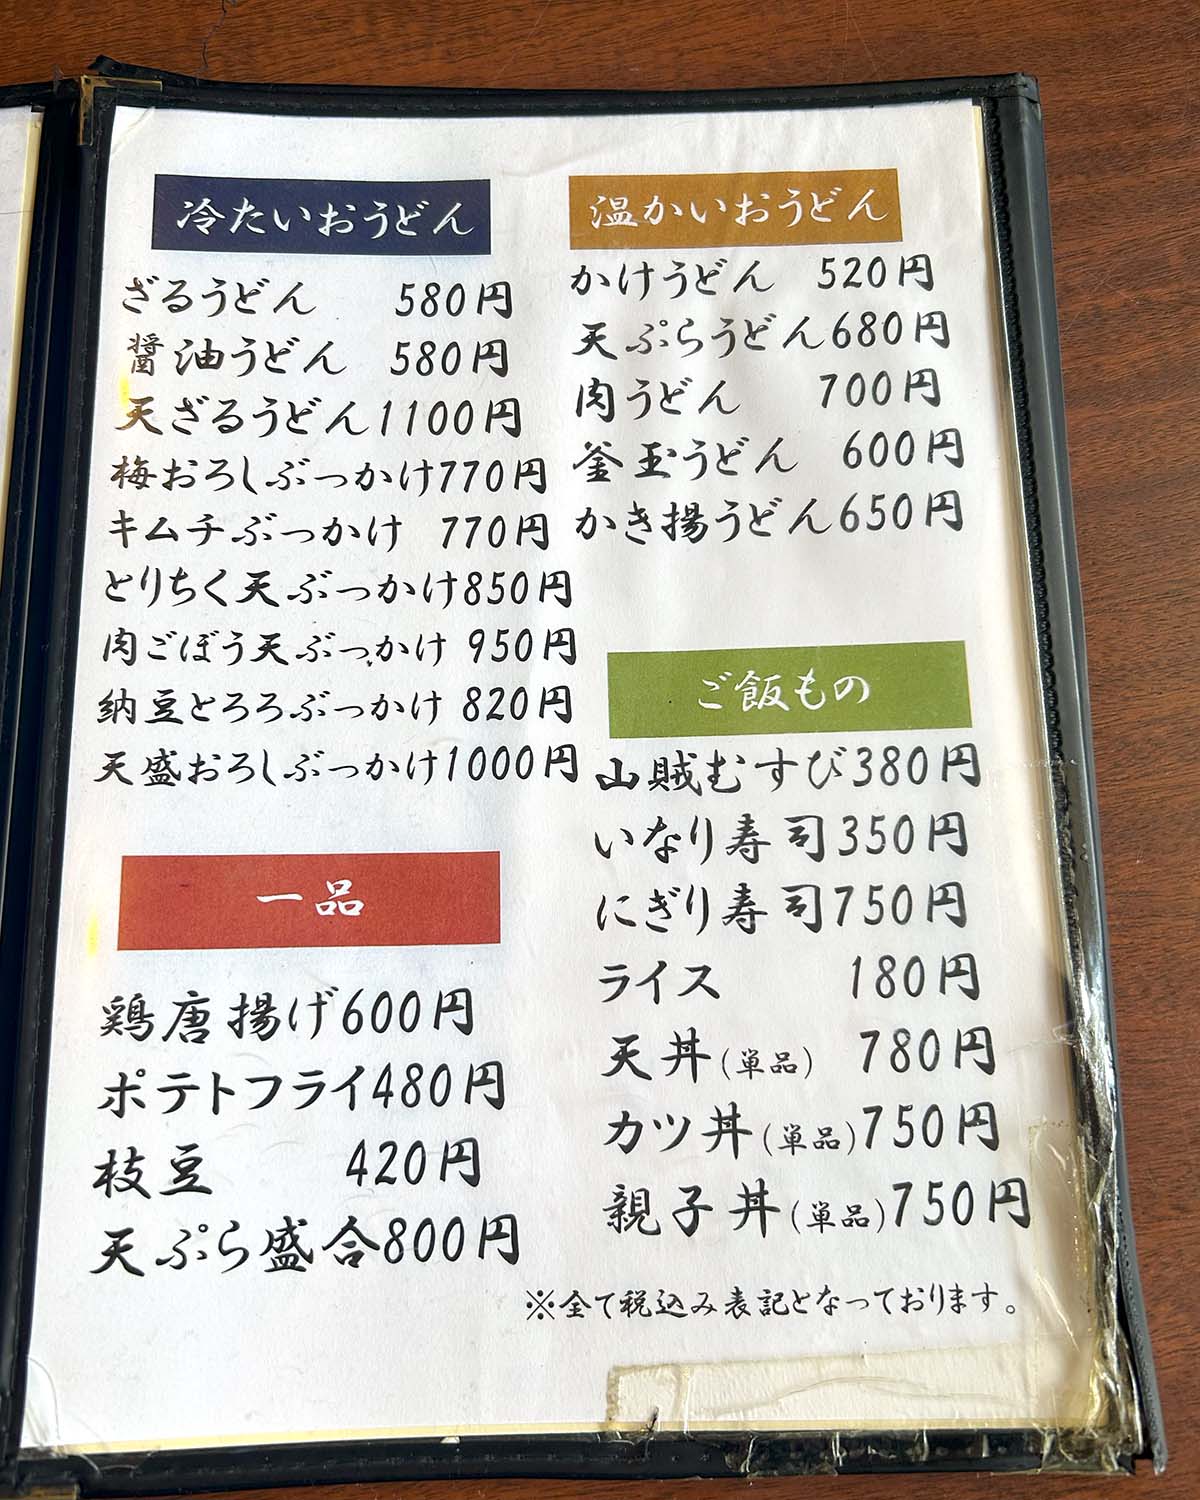 冷たいおうどん
ざるうどん 580円
醤油うどん 580円
天ざるうどん1100円
梅おろしぶっかけ770円
キムチぶっかけ 770円
とりちく天ぶっかけ850円
肉ごぼう天ぶっかけ 950円
納豆とろろぶっかけ 820円
天盛おろしぶっかけ1000円
一品
鶏唐揚げ600円
ポテトフライ480円
枝豆 420円
天ぷら盛合800円
温かいおうどん
かけうどん 520円
天ぷらうどん680円
肉うどん 700円
釜玉うどん 600円
かき揚うどん650円
ご飯もの
山賊むすび380円
いなり寿司350円
にぎり寿司750円
ライス 180円
天丼(単品) 780円
カツ丼(単品)750円
親子丼(単品)750円
※全て税込み表記となっております。